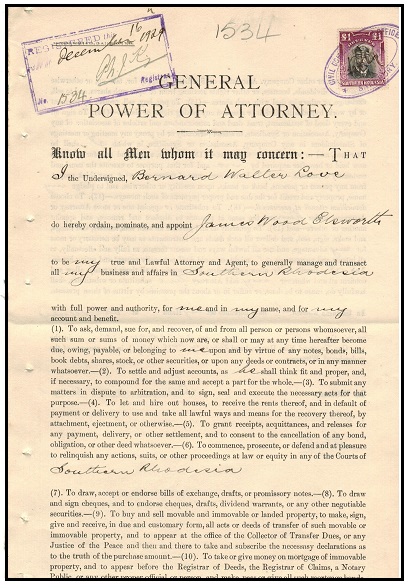 1534
REGISTERED the
December 16 1924
Registrar
No. 1534
£1 £1
CIVIL COMMISSIONER'S OFFICE
SOUTHERN RHODESIA
GENERAL
POWER OF ATTORNEY.
Know all Men whom it may concern:—THAT
I the Undersigned, Bernard Walter Love
do hereby ordain, nominate, and appoint James Wood Elsworth
to be my true and Lawful Attorney and Agent, to generally manage and transact
all my business and affairs in Southern Rhodesia
with full power and authority, for me and in my name, and for my
account and benefit.
(1). To ask, demand, sue for, and recover, of and from all person or persons whomsoever, all
such sum or sums of money which now are, or shall or may at any time hereafter become
due, owing, payable, or belonging to me upon and by virtue of any notes, bonds, bills,
book debts, shares, stock, or other securities, or upon any deeds or contracts, or in any manner
whatsoever.—(2). To settle and adjust accounts, as he shall think fit and proper, and,
if necessary, to compound for the same and accept a part for the whole.—(3). To submit any
matters in dispute to arbitration, and to sign, seal and execute the necessary acts for that
purpose.—(4). To let and hire out houses, to receive the rents thereof, and in default of
payment or delivery to use and take all lawful ways and means for the recovery thereof, by
attachment, ejectment, or otherwise.—(5). To grant receipts, acquittances, and releases for
any payment, delivery, or other settlement, and to consent to the cancellation of any bond,
obligation, or other deed whatsoever.—(6). To commence, prosecute, or defend and at pleasure
to relinquish any actions, suits, or other proceedings at law or equity in any of the Courts of
Southern Rhodesia
(7). To draw, accept or endorse bills of exchange, drafts, or promissory notes.—(8). To draw
and sign cheques, and to endorse cheques, drafts, dividend warrants, or any other negotiable
securities.—(9). To buy and sell movable and immovable or landed property, to make, sign,
give and receive, in due and customary form, all acts or deeds of transfer of such movable or
immovable property, and to appear at the office of the Collector of Transfer Dues, or any
Justice of the Peace and then and there to take and subscribe the necessary declarations as
to the truth of the purchase amount.—(10). To take or give money on mortgage of immovable
property, and to appear before the Registrar of Deeds, the Registrar of Claims, a Notary
Public, or any other proper official or person, and